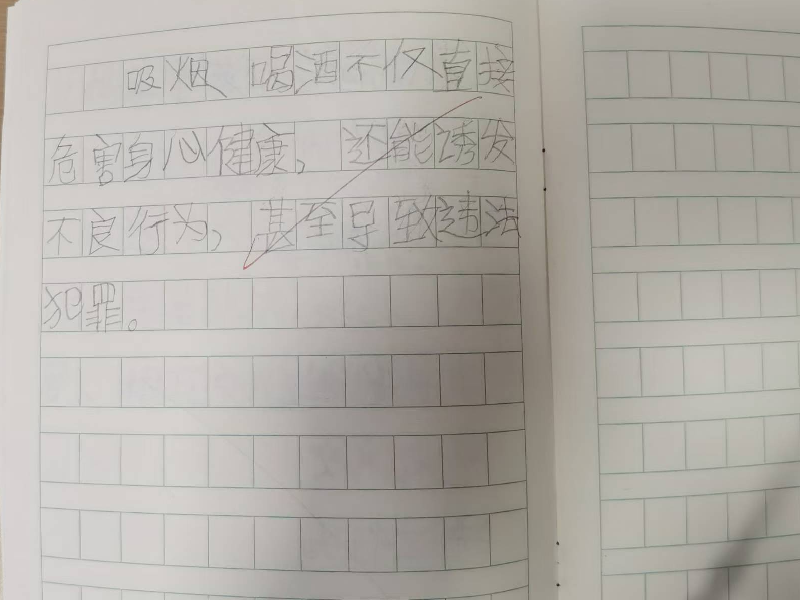 吸烟 喝酒不仅直接
危害身心健康，还能诱发
不良行为，甚至导致违法
犯罪。